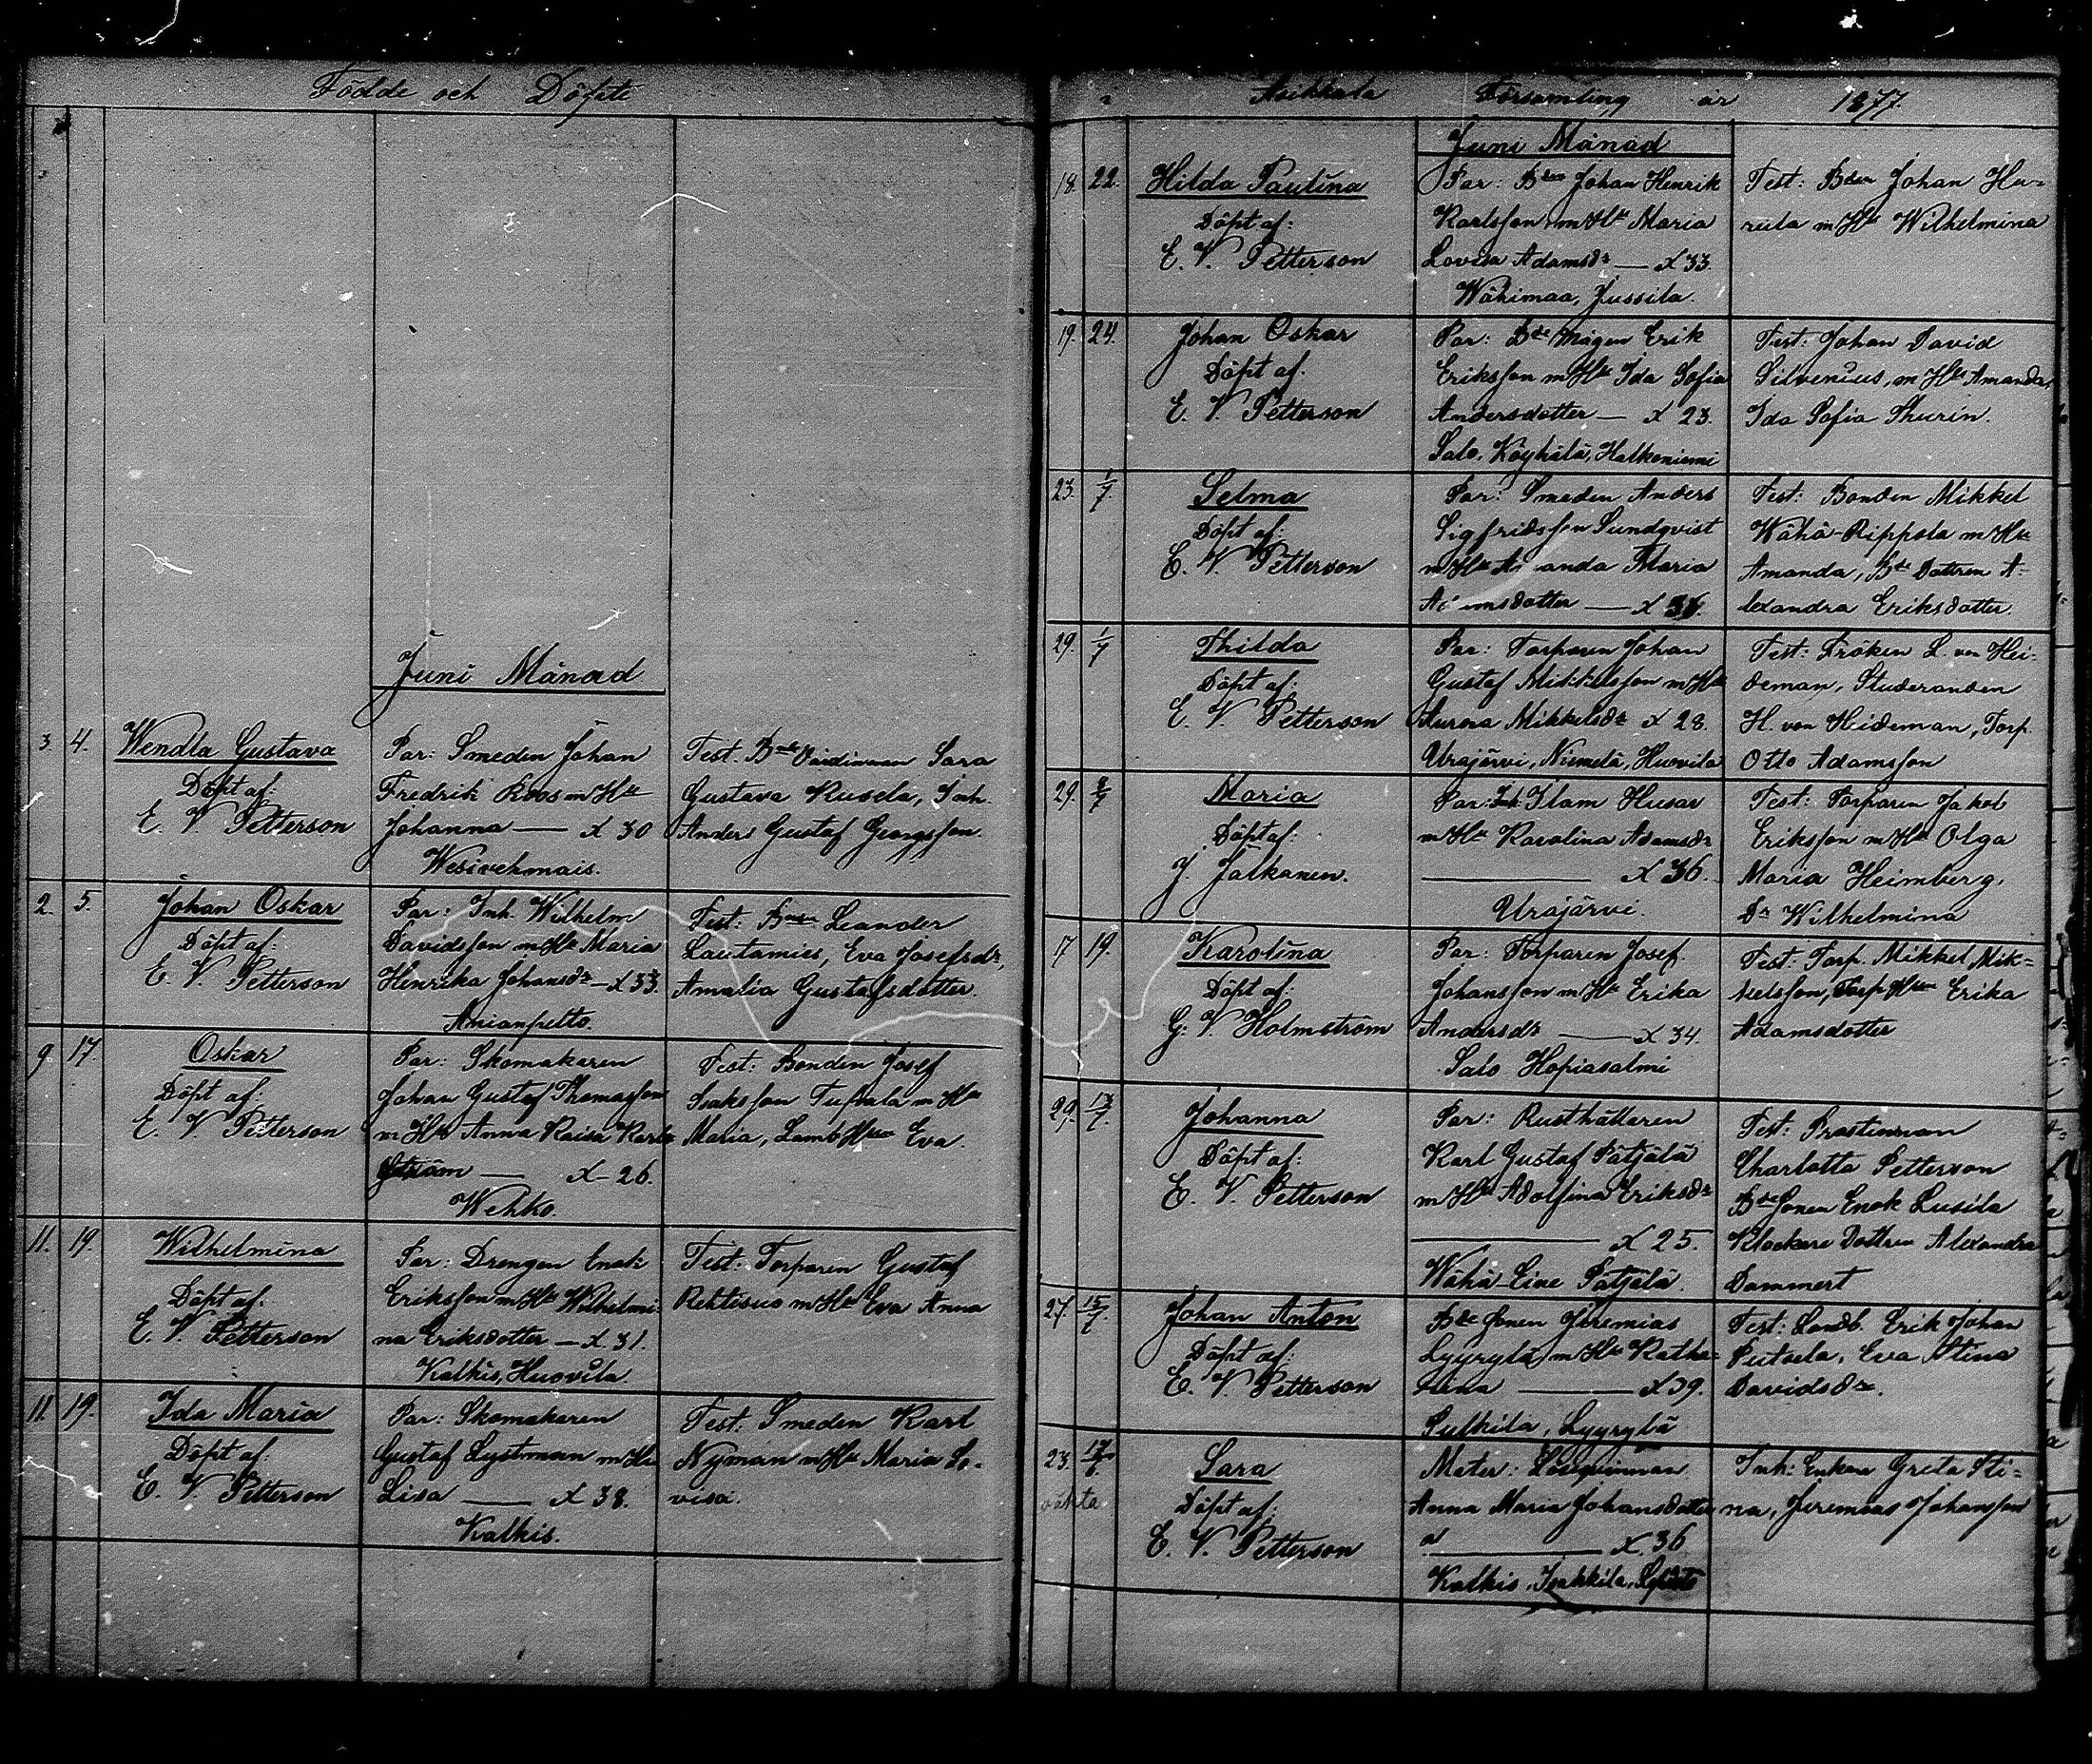 Födde och Döpte
Juni Månad
3. 4. Wendla Gustava
Döpt af:
E. V. Petterson
Par: Smeden Johan
Fredrik Roos m Hu
Johanna — x 30
Wesivehmais.
Test. Bde Värdinnan Sara
Gustava Kusela, Inh.
Anders Gustaf Georgsson.
2. 5. Johan Oskar
Döpt af:
E. V. Petterson
Par: Inh. Wilhelm
Davidsson m Hu Maria
Henrika Johansdr — x 33.
Anianpelto.
Test: Bden Leander
Lautamies, Eva Josefsdr,
Amalia Gustafsdotter.
9. 17. Oskar
Döpt af:
E. V. Petterson
Par: Skomakaren
Johan Gustaf Thomasson
m Hu Anna Kaisa Karls
ström — x 26.
Wehko.
Test: Bonden Josef
Isaksson Tuskala m Hu
Maria, Landb Hun Eva.
11. 19. Wilhelmina
Döpt af:
E. V. Petterson
Par: Drengen Enok
Eriksson m Hu Wilhelmi-
na Eriksdotter — x 31.
Kalkis, Huovila
Test: Torparen Gustaf
Rehtisuo m Hu Eva Anna
11. 19. Ida Maria
Döpt af:
E. V. Petterson
Par: Skomakaren
Gustaf Lystman m Hu
Lisa — x 38.
Kalkis.
Test: Smeden Karl
Nyman m Hu Maria Lo-
visa.
i Asikkala Församling år 1877.
Juni Månad
18. 22. Hilda Paulina
Döpt af:
E. V. Petterson
Par: Bden Johan Henrik
Karlsson m Hu Maria
Lovisa Adamsdr — x 33.
Wähimaa, Jussila.
Test: Bden Johan Hu-
rula m Hu Wilhelmina
19. 24. Johan Oskar
Döpt af:
E. V. Petterson
Par: Bde Mågen Erik
Eriksson m Hu Ida Sofia
Andersdotter — x 23.
Salo, Köyhälä, Halkoniemi
Test: Johan David
Silvenius, m Hu Amanda,
Ida Sofia Thurin.
23. 1/7. Selma
Döpt af:
E. V. Petterson
Par: Smeden Anders
Sigfridsson Sundqvist
m Hu Amanda Maria
Adamsdotter — x
Test: Bonden Mikkel
Wähä-Rippola m Hu
Amanda, Bde Dottren A-
lexandra Eriksdotter.
29. 1/7 Thilda
Döpt af:
E. V. Petterson
Par: Torparen Johan
Gustaf Mikkelsson m Hu
Aurora Mikkelsdr x 28.
Urajärvi, Niemelä, Huovila
Test: Fröken L. von Hei-
deman, Studeranden
H. von Heideman, Torp.
Otto Adamsson
29. 8/7 Maria
Döpt af:
J. Jalkanen.
Par: Inh. Ilam Husar
m Hu Karolina Adamsdr
— x 36.
Urajärvi.
Test: Torparen Jakob
Eriksson m Hu Olga
Maria Heimberg.
Dr Wilhelmina
17 19. Karolina
Döpt af:
G: V Holmström
Par: Torparen Josef
Johansson m Hu Erika
Andersdr — x 34.
Salo Hopiasalmi
Test: Torp. Mikkel Mik-
kelsson, Torp Hun Erika
Adamsdotter
29. 13/7. Johanna
Döpt af:
E. V. Petterson
Par: Rusthållaren
Karl Gustaf Pätjälä
m Hu Adolfina Eriksdr
— x 25.
Wähä-Eine Pätjälä.
Test: Prostinnan
Charlotta Petterson
Bde Sonen Enok Lusila
Klockare Dottren Alexandra
Dammert
27. 15/7 Johan Anton
Döpt af:
E. V. Petterson
Bde Sonen Jeremias
Lyyrylä m Hu Katha-
rina — x 39.
Pulkila, Lyyrylä
Test: Landb. Erik Johan
Putaela, Eva Stina
Davidsdr.
23. oäkta Sara
Döpt af:
E. V. Petterson
Mater: Löskvinnan
Anna Maria Johansdotter
— x 36
Kalkis, Isakkila,
Inh: Enkan Greta Sti-
na, Jeremias Johansson